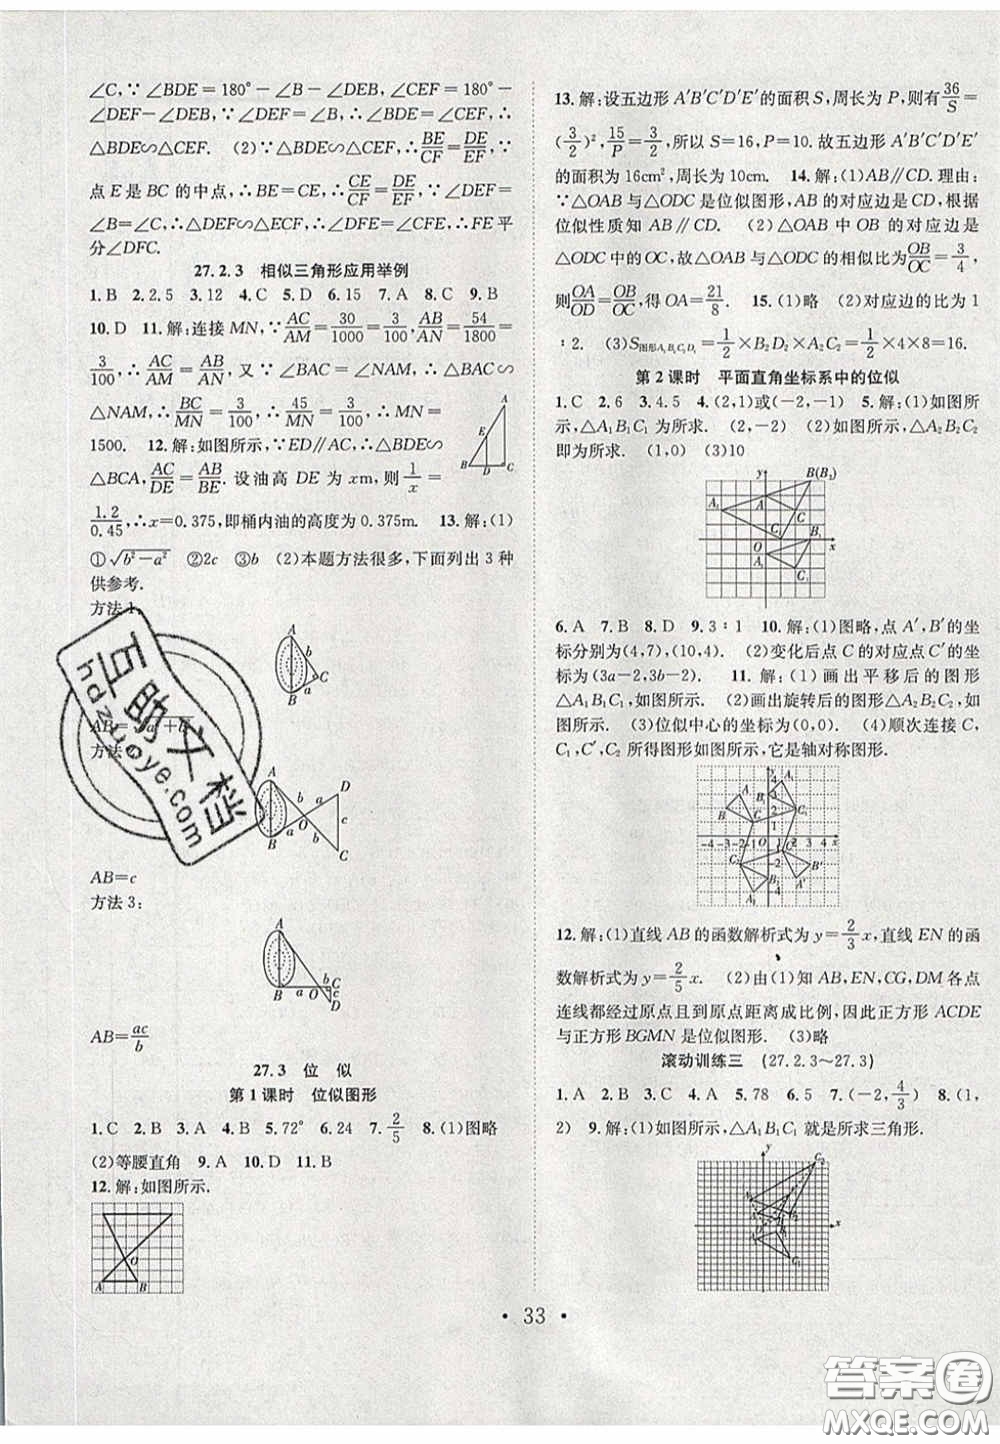 ∠C,∵∠BDE=180°-∠B-∠DEB,∠CEF=180°
-∠DEF-∠DEB,∵∠DEF=∠B,∴∠BDE=∠CEF,∴
△BDE∽△CEF. (2)∵△BDE∽△CEF,∴BE/CF=DE/EF,∵
点E是BC的中点,∴BE=CE,∴CE/CF=DE/EF,∵∠DEF
=∠B=∠C,∴△DEF∽△ECF,∴∠DFE=∠CFE,∴FE平
分∠DFC.
27.2.3 相似三角形应用举例
1.B 2.2.5 3.12 4.C 5.D 6.15 7.A 8.C 9.B
10.D 11.解:连接MN,∵AC/AM=30/1000=3/100,AB/AN=54/1800=
3/100,∴AC/AM=AB/AN,又∵∠BAC=∠NAM,∴△BAC∽
△NAM,∴BC/MN=3/100,∴45/MN=3/100,∴MN=
1500. 12.解:如图所示,∵ED∥AC,∴△BDE∽
△BCA,AC/DE=AB/BE.设油高DE为xm,则1/x=
1.2/0.45,∴x=0.375,即桶内油的高度为0.375m. 13.解:(1)
①√(b²-a²) ②2c ③b (2)本题方法很多,下面列出3种
供参考.
方法1:
A
B a C
AB=
方法
A b a D
O c
B a b C
AB=c
方法3:
A
b C
B a O c
D
AB=ac/b
27.3 位 似
第1课时 位似图形
1.C 2.B 3.A 4.B 5.72° 6.24 7.2/5 8.(1)图略
(2)等腰直角 9.A 10.D 11.B
12.解:如图所示.
O
A B
13.解:设五边形A′B′C′D′E′的面积S,周长为P,则有36/S=
(3/2)²,15/P=3/2,所以S=16,P=10.故五边形A′B′C′D′E′
的面积为16cm²,周长为10cm. 14.解:(1)AB∥CD.理由:
∵△OAB与△ODC是位似图形,AB的对应边是CD,根据
位似性质知AB∥CD. (2)△OAB中OB的对应边是
△ODC中的OC,所以△OAB与△ODC的相似比为OB/OC=3/4,
则OA/OD=OB/OC,得OA=21/8. 15.(1)略 (2)对应边的比为1
:2. (3)S图形A₁B₁C₁D₁=1/2×B₂D₂×A₂C₂=1/2×4×8=16.
第2课时 平面直角坐标系中的位似
1.C 2.6 3.4.5 4.(2,1)或(-2,-1) 5.解:(1)如图所
示,△A₁B₁C₁为所求. (2,-2) (2)如图所示,△A₂B₂C₂
即为所求. (1,0) (3)10
y B(B₂)
A₂ A C
C₂ O B₁ x
A₁ C₁
6.A 7.B 8.D 9.3:1 10.解:(1)图略,点A′,B′的坐
标分别为(4,7),(10,4). (2)变化后点C的对应点C′的坐
标为(3a-2,3b-2). 11.解:(1)画出平移后的图形
△A₁B₁C₁,如图所示. (2)画出旋转后的图形△A₂B₂C₂,如
图所示. (3)位似中心的坐标为(0,0). (4)顺次连接C,
C₁,C′,C₂所得图形如图所示,它是轴对称图形.
12.解:(1)直线AB的函数解析式为y=2/3x,直线EN的函
数解析式为y=2/5x. (2)由(1)知AB,EN,CG,DM各点
连线都经过原点且到原点距离成比例,因此正方形ACDE
与正方形BGMN是位似图形. (3)略
滚动训练三 (27.2.3~27.3)
1.A 2.B 3.C 4.B 5.78 6.5 7.(-2,4/3) 8.(1,
2) 9.解:(1)如图所示,△A₁B₁C₁就是所求三角形.
y C₂
x
C₁
• 33 •
互助文档
hdzuoye.com
答案圈
MXQE.COM